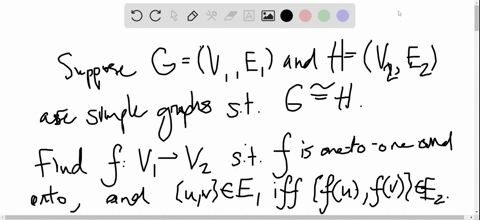 Suppose G = (V₁, E₁) and H = (V₂, E₂)
are simple graphs s.t. G ≅ H.
Find f: V₁ → V₂ s.t. f is one-to-one and
onto, and {u,v} ∈ E₁ iff {f(u), f(v)} ∈ E₂.